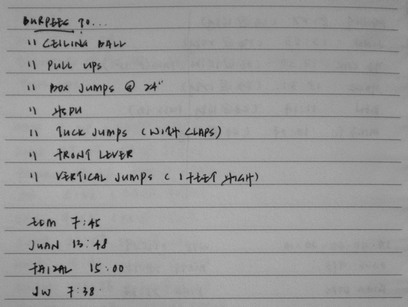 BURPEES TO...
" CEILING BALL
" PULL UPS
" BOX JUMPS @ 24"
" HSPU
" TUCK JUMPS (WITH CLAPS)
" FRONT LEVER
" VERTICAL JUMPS ( 1 FEET HIGH)
7:45
JUAN 13:48
FAIZAL 15:00
JW 7:38